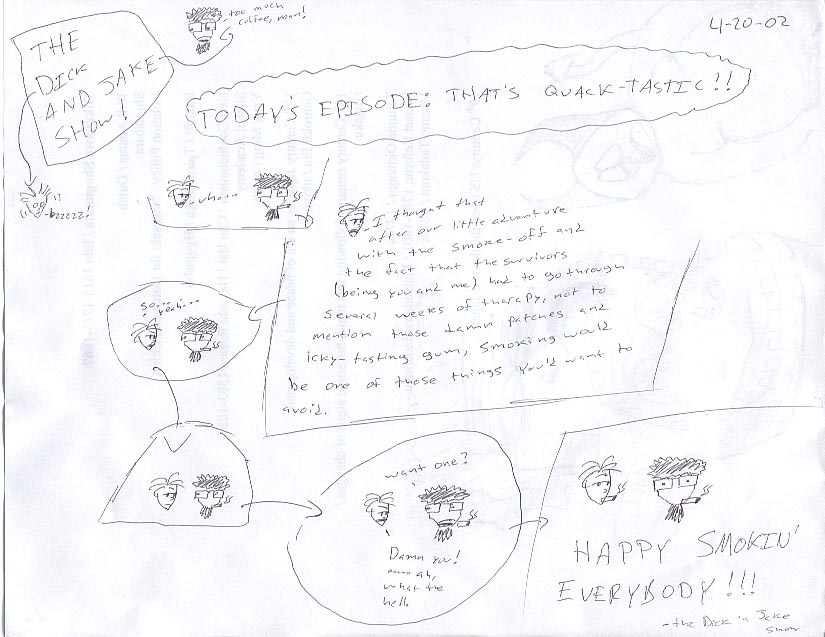 THE
DICK
AND JAKE
SHOW!
too much
coffee, man!
4-20-02
bzzzzz!
TODAY'S EPISODE: THAT'S QUACK-TASTIC!!
who...
I thought that
after our little adventure
with the smoke-off and
the fact that the survivors
(being you and me) had to go through
several weeks of therapy, not to
mention those damn patches and
icky-tasting gum, smoking would
be one of those things you'd want to
avoid.
so...
yeah...
want one?
Damn you!
ah,
what the
hell.
HAPPY SMOKIN'
EVERYBODY!!!
-the Dick 'n Jake
show